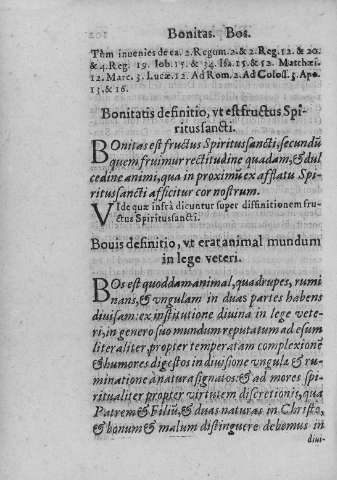 Bonitas. Bos.
Tãm inuenies de ea. 2. Regum. 2. & 2. Reg. 12. & 20.
& 4. Reg. 19. Iob. 15. & 34. Isa. 15. & 52. Matthæi.
12. Marc. 3. Lucæ. 12. Ad Rom. 2. Ad Coloss. 3. Apo.
13. & 16.
Bonitatis definitio, vt est fructus Spi-
ritussancti.
BOnitas est fructus Spiritussancti, secundũ
quem fruimur rectitudine quadam, & dul
cedine animi, qua in proximũ ex afflatu Spi-
ritussancti afficitur cor nostrum.
VIde quæ infrà dicuntur super diffinitionem fru-
ctus Spiritussancti.
Bouis definitio, vt erat animal mundum
in lege veteri.
BOs est quoddam animal, quadrupes, rumi
nans, & vngulam in duas partes habens
diuisam: ex institutione diuina in lege vete-
ri, in genere suo mundum reputatum ad esum
literaliter, propter temperatam complexionẽ
& humores digestos in diuisione vngulæ & ru-
minatione a natura signatos: & ad mores spi-
ritualiter propter virtutem discretionis, qua
Patrem & Filiũ, & duas naturas in Christo,
& bonum & malum distinguere debemus in
diui-